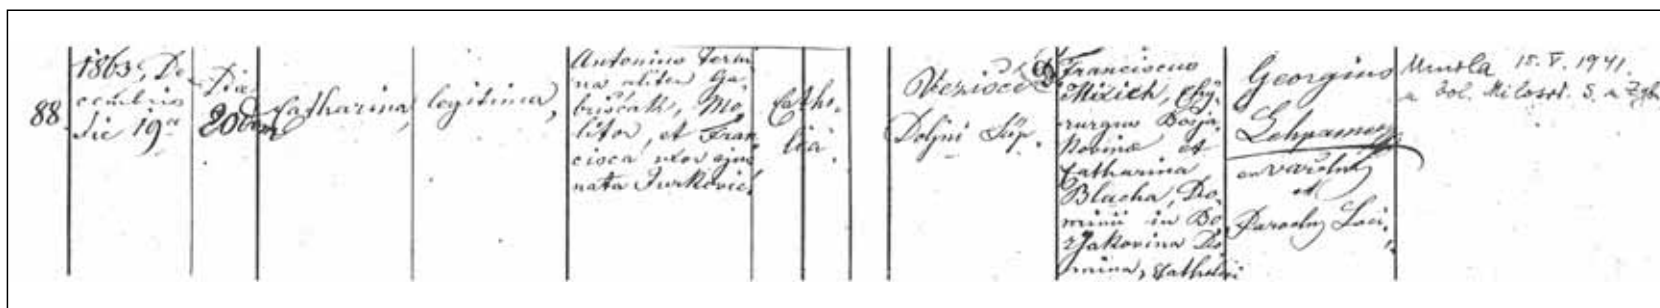 88.
1863, De-
cembris
die 19a
Die
20dem
Catharina,
legitima,
Antonius
na aliter Ga-
briščak, Mo-
litor, et Fran
cisca uxor ejus
nata Jurković
Catho-
lica.
Doljni Šip.
Franciscus
Mixich, Chy-
rurgus Bosja-
kovine et
Catharina
Blacha, Do-
minii in Bo-
zjakovina Do-
mina, Catholici
Georgius
Lehpamer
et
Parochus Loci.
Umrla 15. V. 1941.
u bol. Milosrd. S. u Zgb